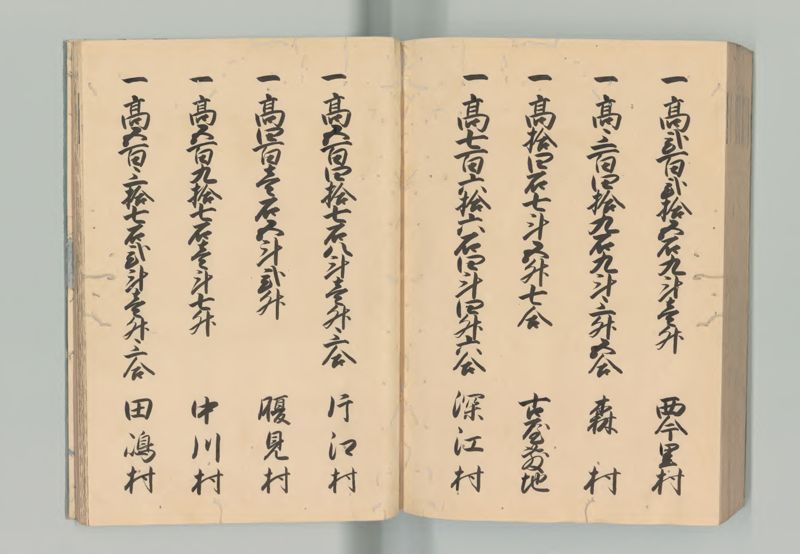 一高弐百弐拾五石九斗壱升 西今里村
一高三百四拾九石九斗三升五合 森村
一高拾四石七斗五升七合 古屋敷地
一高七百六拾六石四斗四升六合 深江村
一高五百四拾七石八斗壱升三合 片江村
一高四百壱石五斗弐升 腹見村
一高五百九拾七石壱斗七升 中川村
一高五百三拾七石弐斗壱升三合 田嶋村